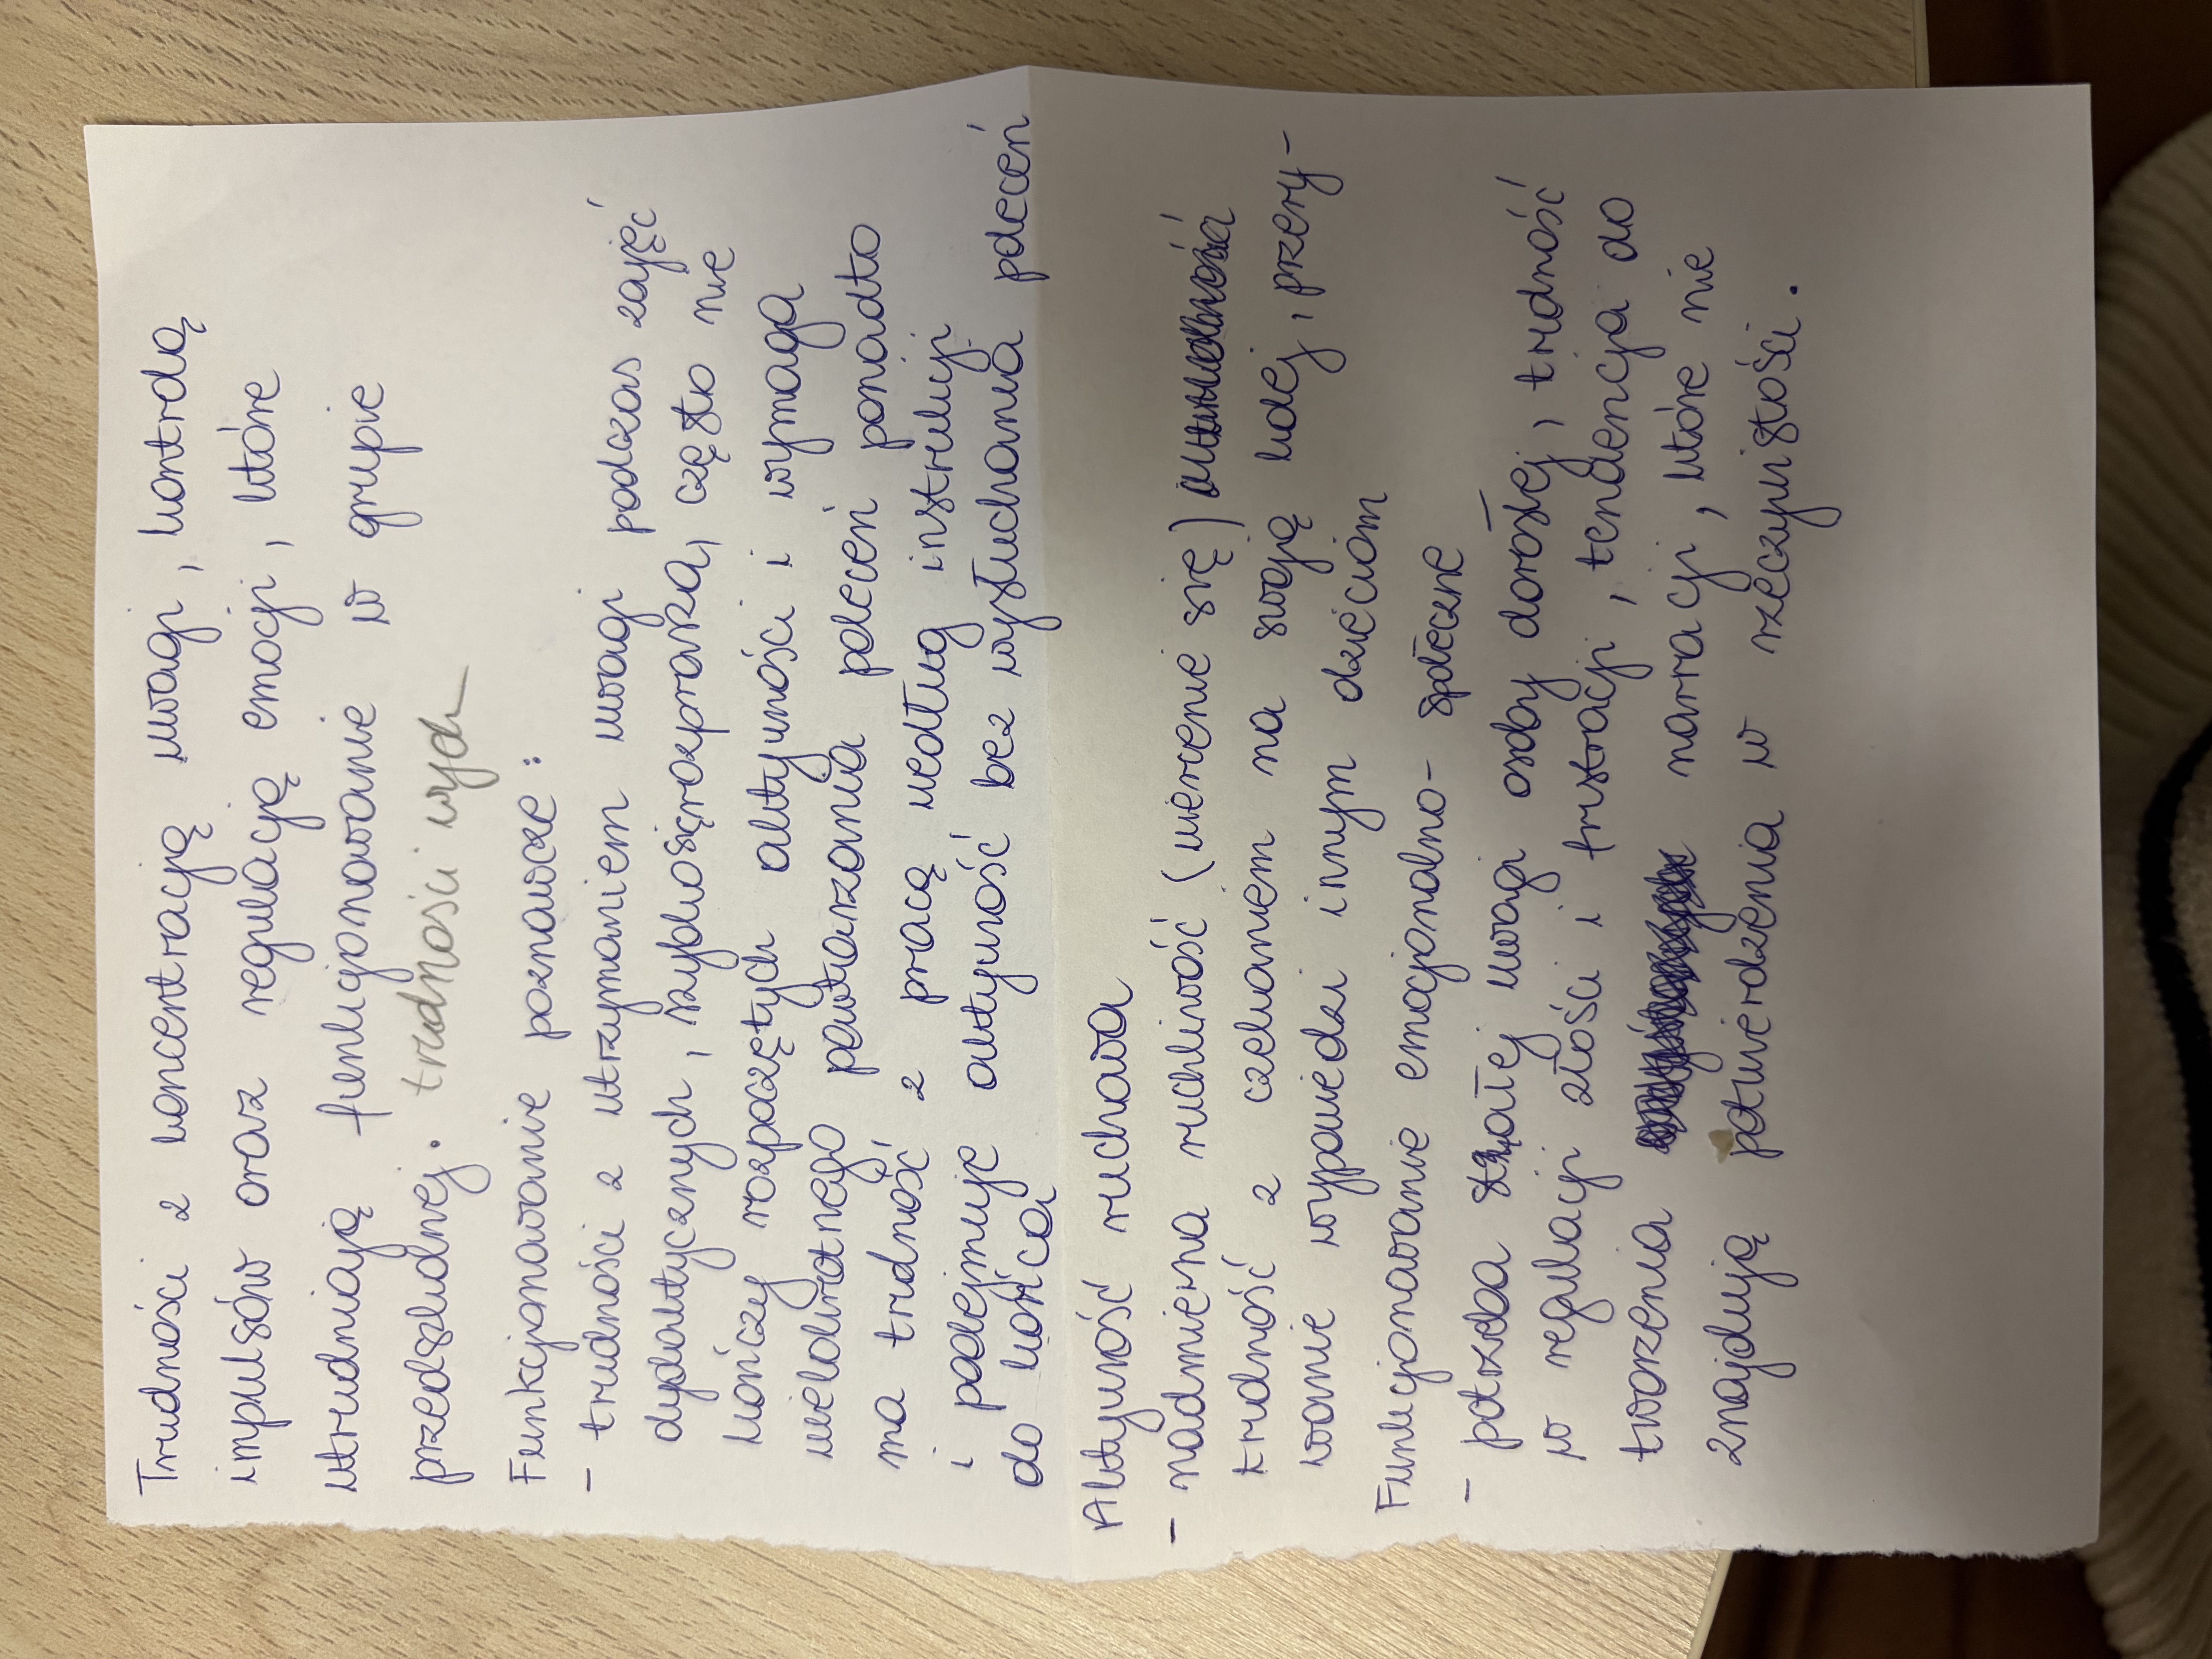 Trudności z koncentracją uwagi, kontrolą
impulsów oraz regulacją emocji, które
utrudniają funkcjonowanie w grupie
przedszkolnej. trudności wych
Funkcjonowanie poznawcze:
- trudności z utrzymaniem uwagi podczas zajęć
dydaktycznych, szybko się rozprasza, często nie
kończy rozpoczętych aktywności i wymaga
wielokrotnego powtarzania poleceń ponadto
ma trudność z pracą według instrukcji
i podejmuje aktywność bez wysłuchania poleceń
do końca
Aktywność ruchowa
- nadmierna ruchliwość (wiercenie się)
trudność z czekaniem na swoją kolej, przery-
wanie wypowiedzi innym dzieciom
Funkcjonowanie emocjonalno-społeczne
- potrzeba stałej uwagi osoby dorosłej, trudność
w regulacji złości i frustracji, tendencja do
tworzenia narracji, które nie
znajdują potwierdzenia w rzeczywistości.